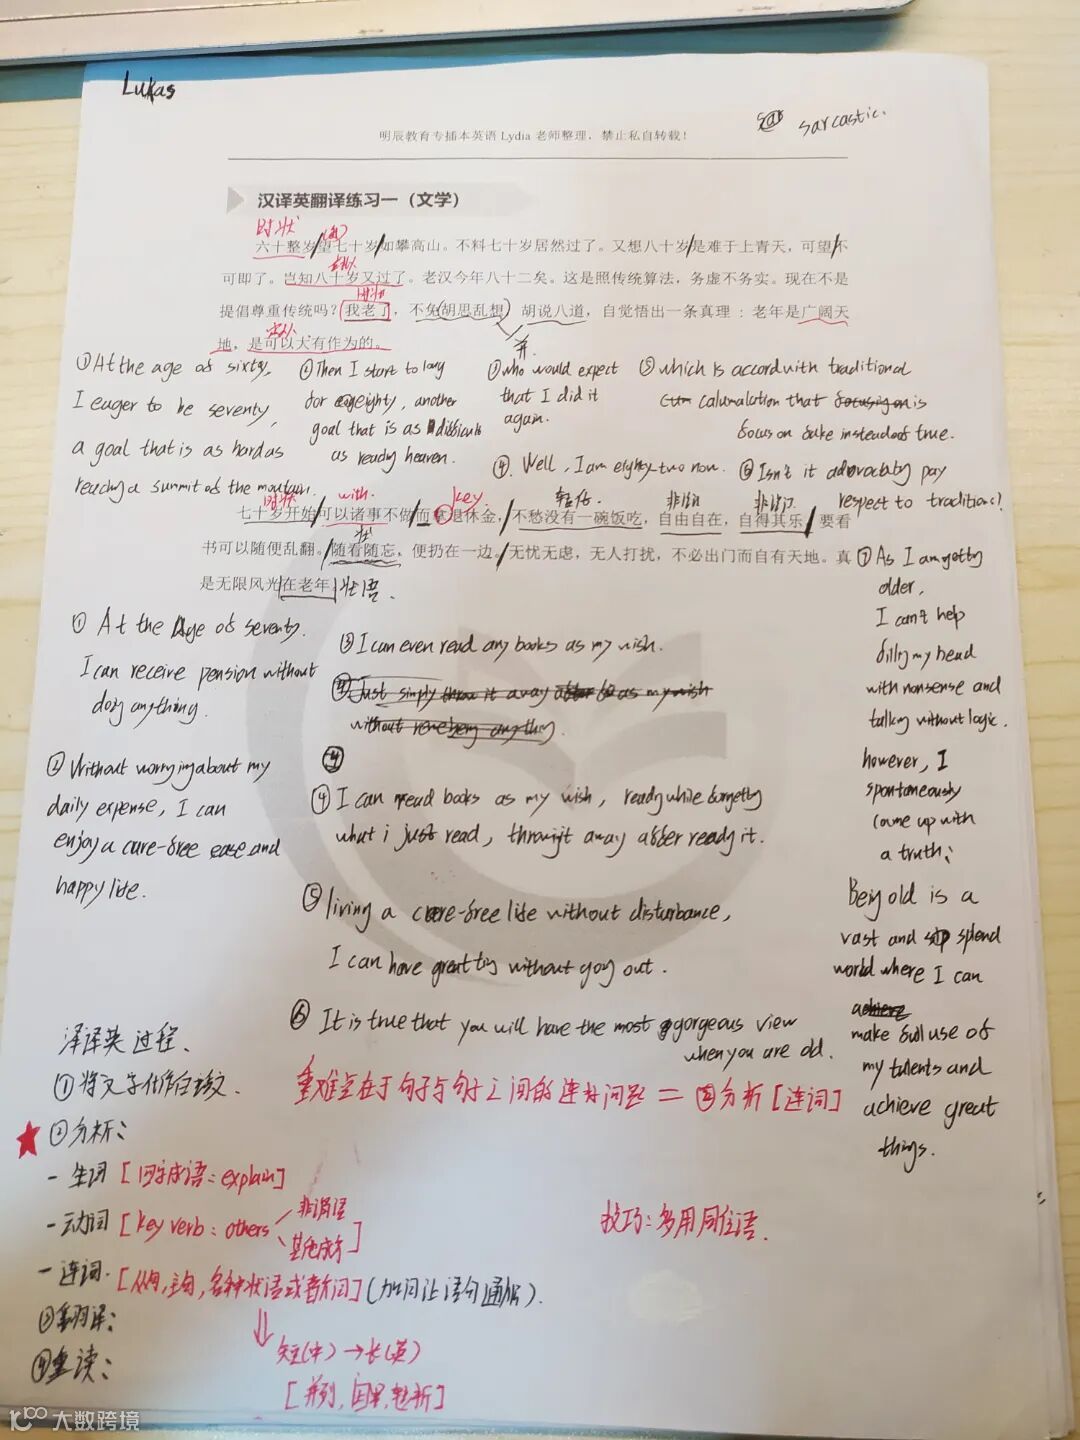 Lukas
sarcastic.
明辰教育专插本英语 Lydia 老师整理，禁止私自转载！
汉译英翻译练习一（文学）
时状
六十整岁望七十岁如攀高山。不料七十岁居然过了。又想八十岁是难于上青天，可望不
可即了。岂知八十岁又过了。老汉今年八十二矣。这是照传统算法，务虚不务实。现在不是
提倡尊重传统吗？我老了，不免胡思乱想，胡说八道，自觉悟出一条真理：老年是广阔天
地，是可以大有作为的。
并.
①At the age of sixty,
I eager to be seventy,
a goal that is as hard as
reaching a summit of the moutain.
②Then I start to long
for eighty, another
goal that is as difficult
as reading heaven.
③who would expect
that I did it
again.
④. Well, I am eighty-two now.
⑤ which is accord with traditional
calumalation that is
focus on fake instead of true.
⑥ Isn't it advocating pay
respect to traditions?
时状
with.
key.
轻化
非谓
非谓
七十岁开始可以诸事不做而拿退休金，不愁没有一碗饭吃，自由自在，自得其乐，要看
书可以随便乱翻。随看随忘，便扔在一边。无忧无虑，无人打扰，不必出门而自有天地。真
是无限风光在老年。
状语.
① At the Age of seventy.
I can receive pension without
doing anything.
② Without worrying about my
daily expense, I can
enjoy a care-free ease and
happy life.
③ I can even read any books as my wish.
④ Just simply throw it away as my wish
without remebering anything.
④ I can read books as my wish, reading while forgetting
what i just read, throwing it away after reading it.
⑤ living a care-free life without disturbance,
I can have great ting without going out.
⑥ It is true that you will have the most gorgeous view
when you are old.
⑦ As I am getting
older,
I can't help
filling my head
with nonsense and
talking without logic.
however, I
spontaneously
come up with
a truth:
Being old is a
vast and splend
world where I can
make full use of
my talents and
achieve great
things.
汉译英过程.
①将文字化作白话文.
重难点在于句子与句子之间的连接问题 = ②分析 [连词]
②分析:
- 生词 [四字成语: explain]
- 动词 [key verb: others
非谓语
其他成分]
- 连词. [从句, 主句, 各种状语或者介词] (加词让语句通顺).
技巧: 多用同位语.
③翻译:
④重读:
短(中) → 长(英)
[并列, 因果, 转折]
大数跨境